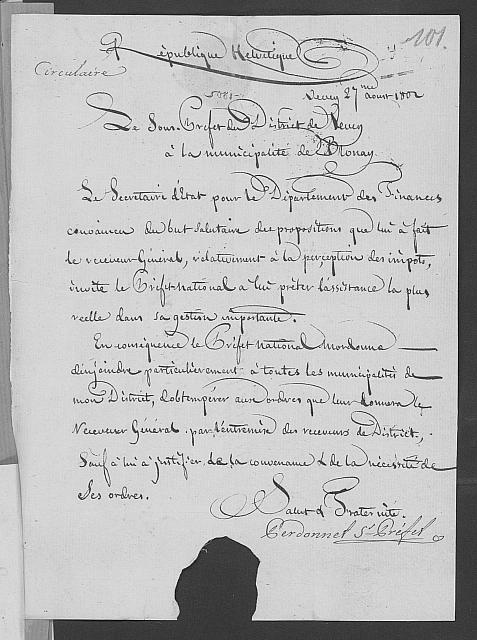 101.
République Helvétique
Circulaire
Vevey 27me Aoust 1802
Le Sous-Préfet du District de Vevey
à la municipalité de Blonay.
Le Secretaire d'Etat pour le Département des Finances
convaincu du but salutaire des propositions que lui a fait
le receveur Général, rélativement à la perception des impots,
invite le Préfet national a lui prêter l'assistance la plus
réelle dans sa gestion importante.
En conséquence le Préfet national m'ordonne
d'enjoindre particulierement à toutes les municipalités de
mon District, d'obtempérer aux ordres que leur donnera le
Receveur Général par l'entremise des receveurs de District,
Sauf à lui à justifier de la convenance & de la nécessité de
Ses ordres.
Salut & Fraternité.
Perdonnet Ss Préfet